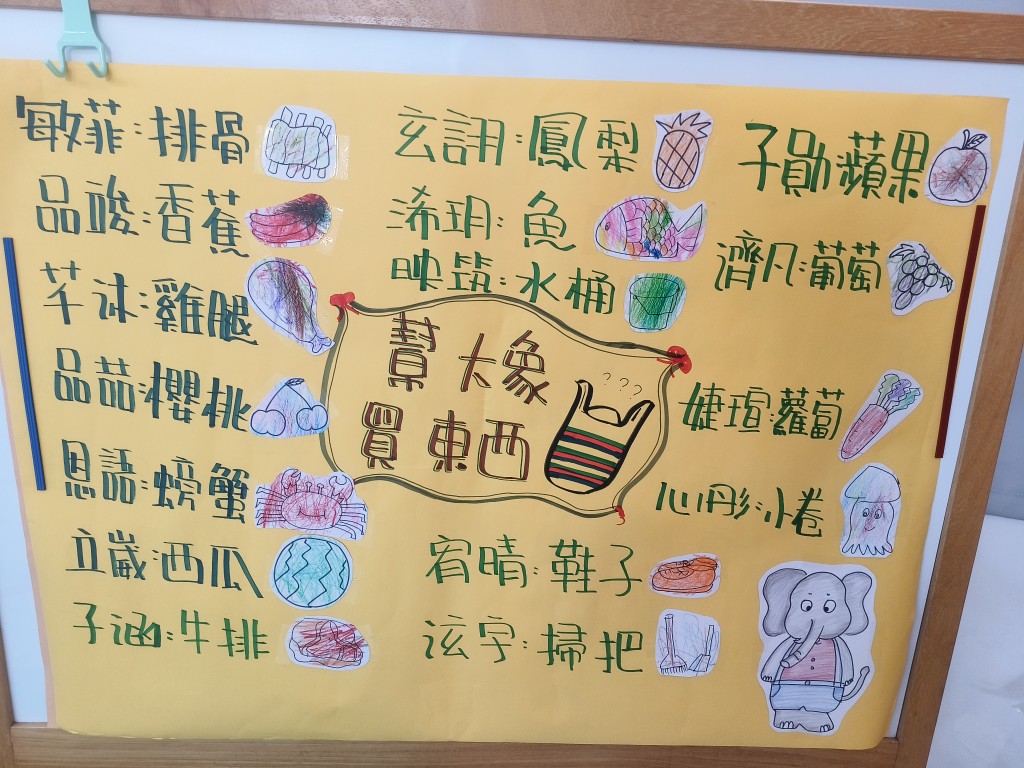 敏菲:排骨
品晙:香蕉
芊沐:雞腿
品喆:櫻桃
恩語:螃蟹
立崴:西瓜
子涵:牛排
玄詡:鳳梨
浠玥:魚
映筑:水桶
幫大象
買東西
???
宥晴:鞋子
泫字:掃把
子勛蘋果
濟凡:葡萄
婕瑄:蘿蔔
心彤:小卷